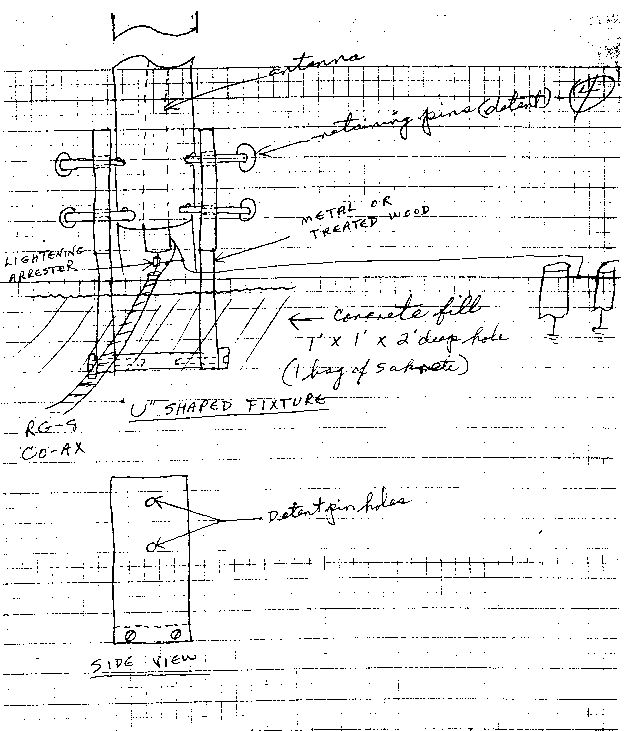 antenna
retaining pins (detent)
4
METAL OR
TREATED WOOD
LIGHTENING
ARRESTER
Concrete fill
1' X 1' X 2' deep hole
(1 bag of Sakrete)
"U" SHAPED FIXTURE
RG-8
CO-AX
Detent pin holes
SIDE VIEW